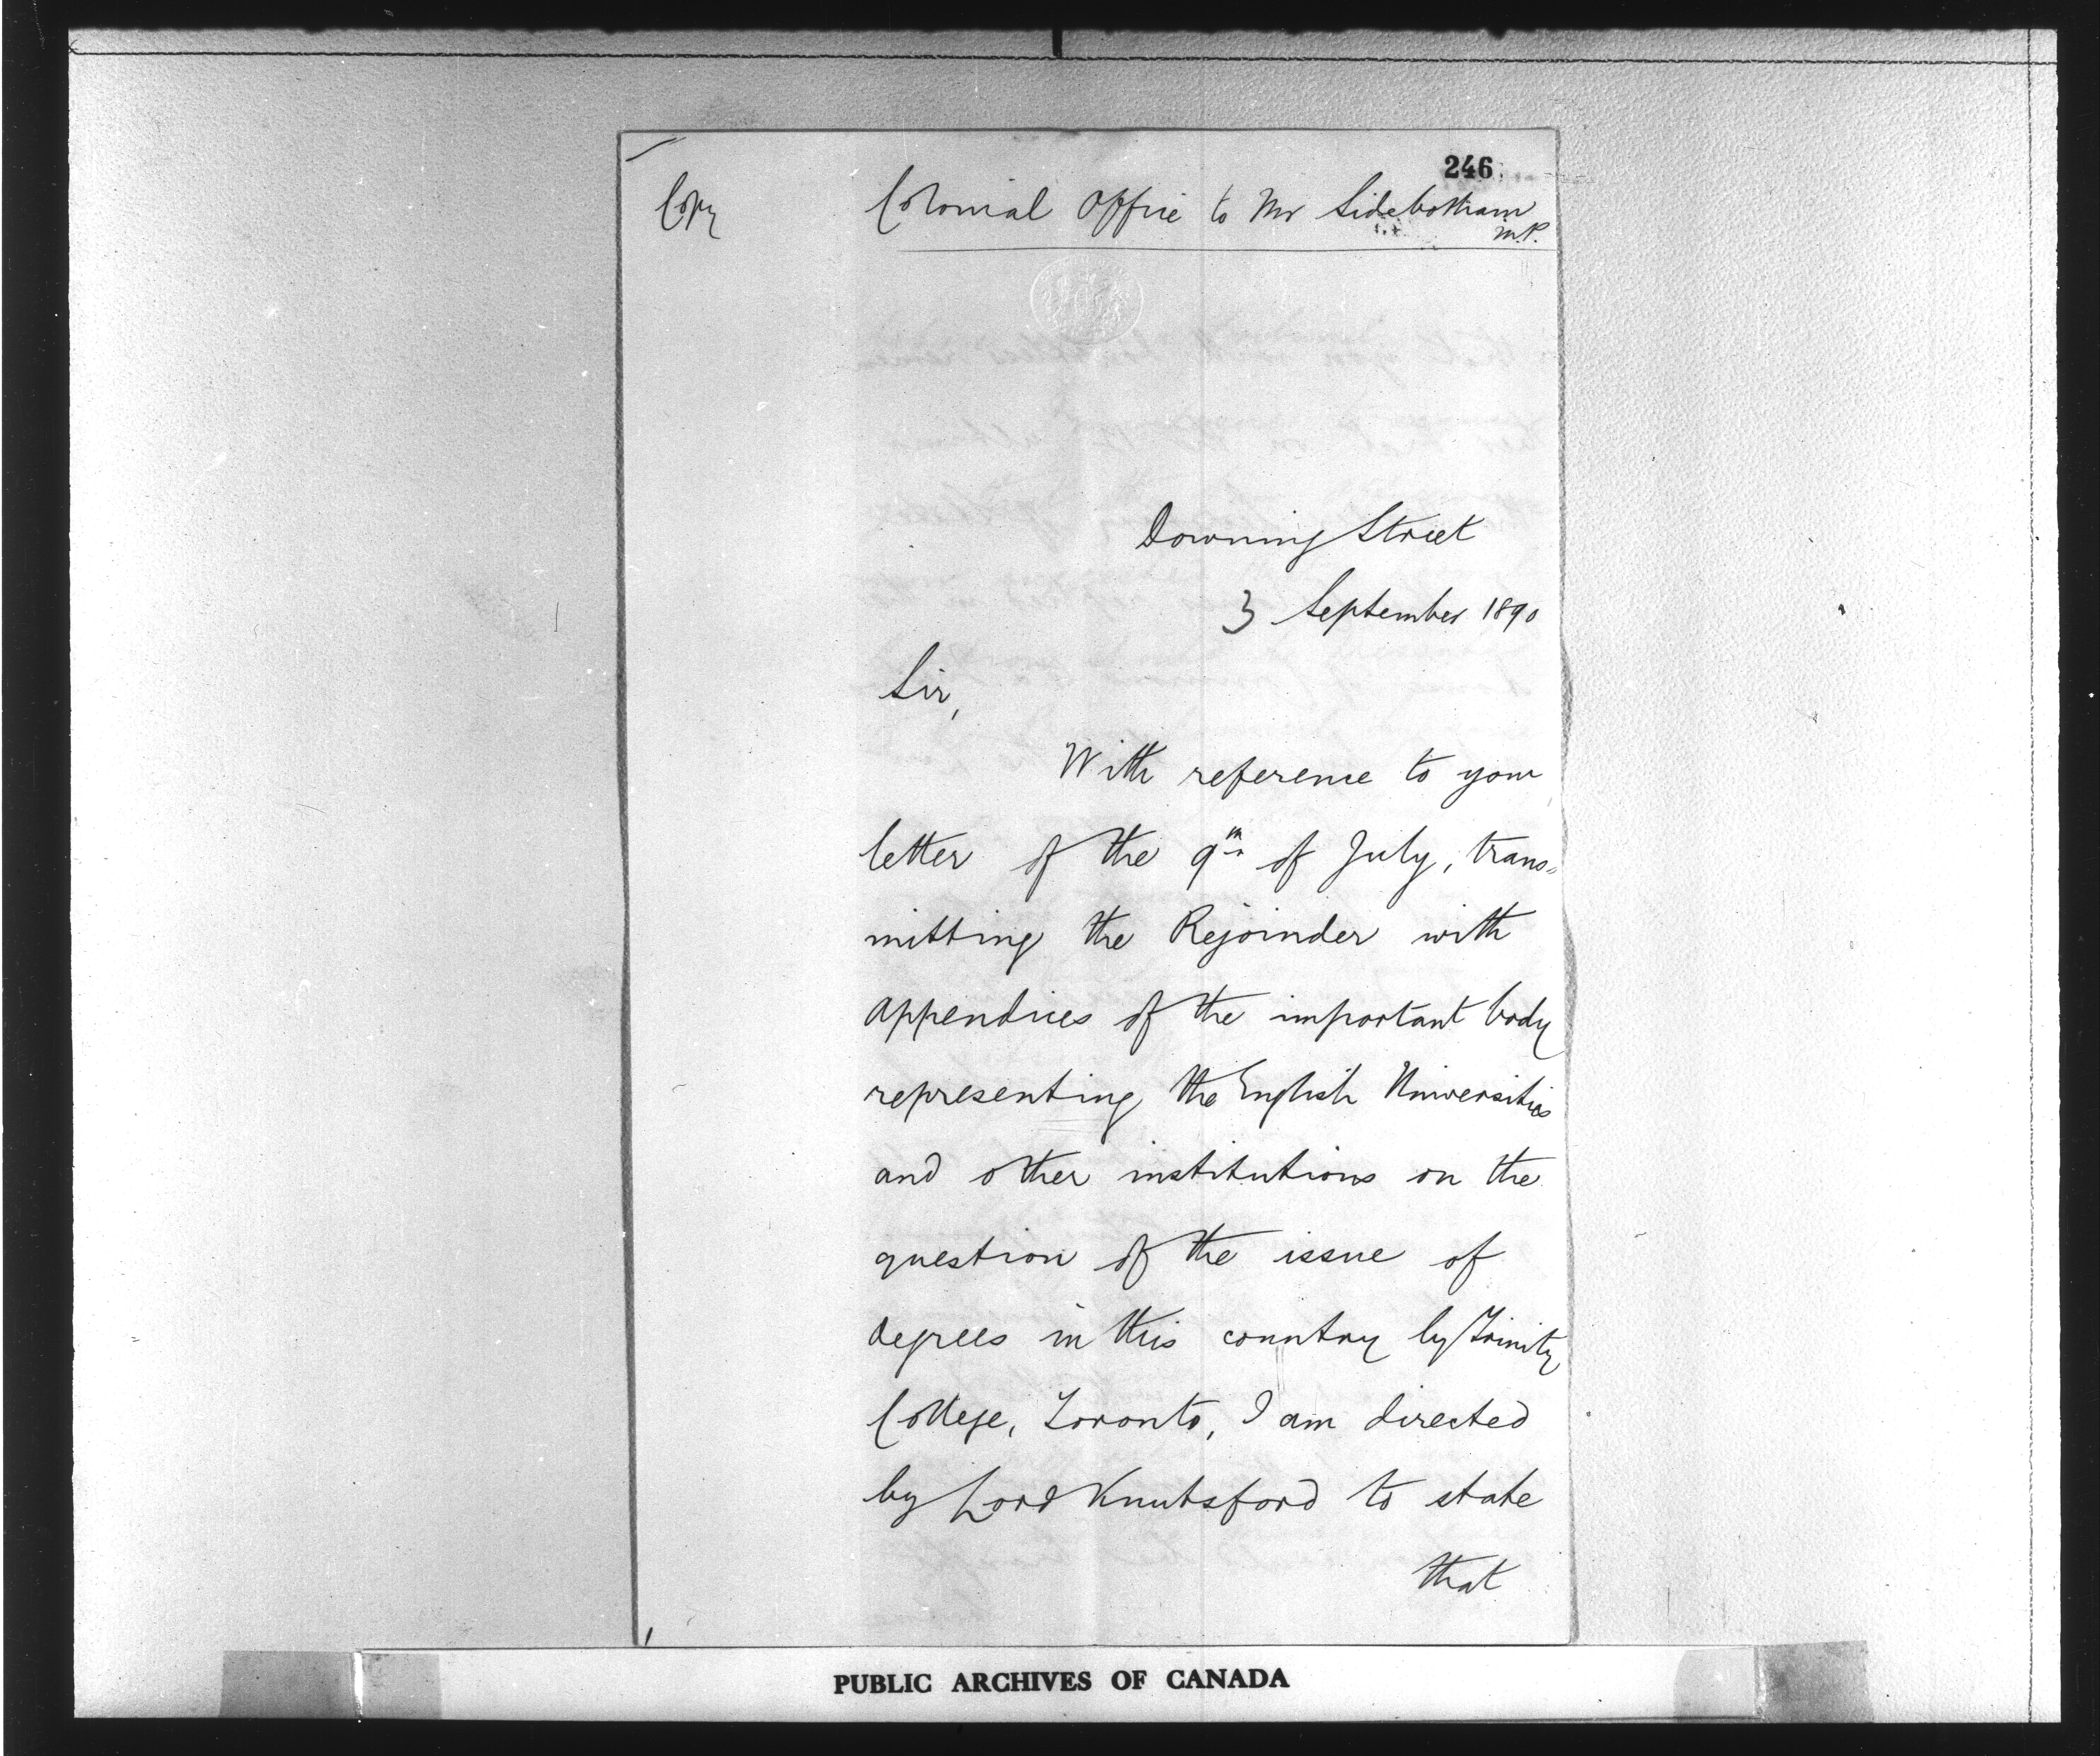 246
Copy
Colonial Office to Mr Sidebotham
M.P.
Downing Street
3 September 1890
Sir,
With reference to your
letter of the 9th of July, trans=
mitting the Rejoinder with
appendices of the important body
representing the English Universities
and other institutions on the
question of the issue of
degrees in this country by Trinity
College, Toronto, I am directed
by Lord Knutsford to state
that
PUBLIC ARCHIVES OF CANADA